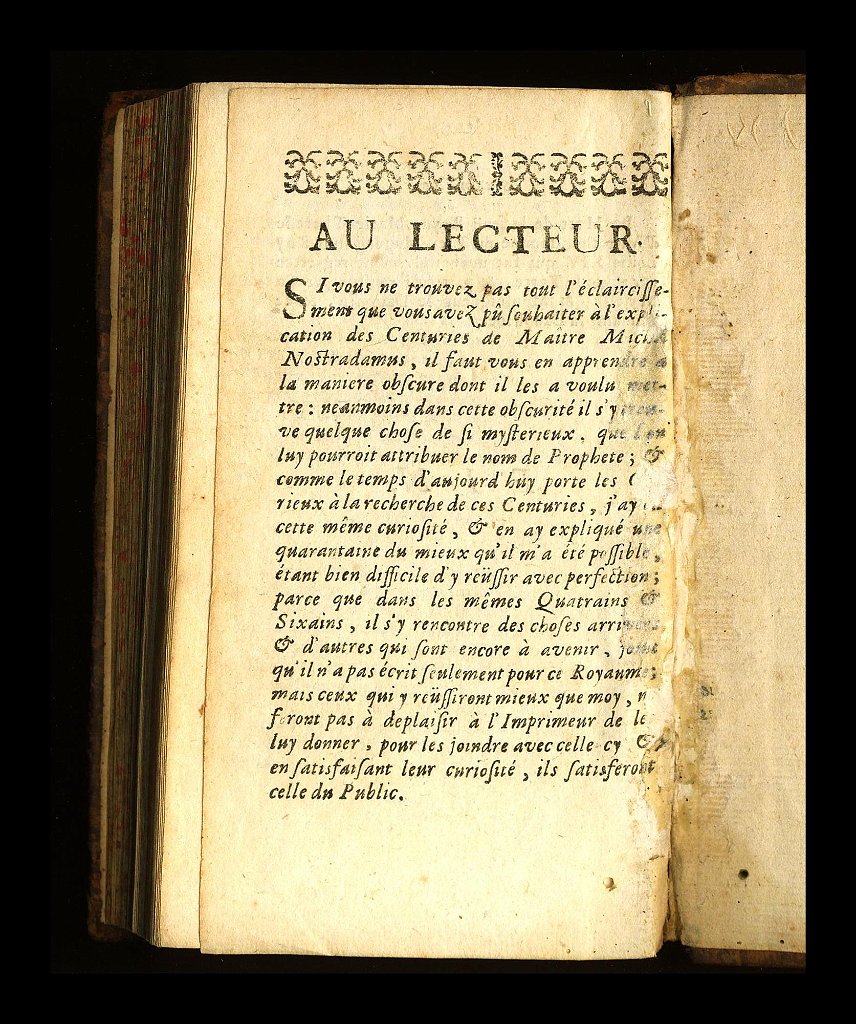 AU LECTEUR.
SI vous ne trouvez pas tout l'éclaircisse-
ment que vous avez pû souhaiter à l'expli-
cation des Centuries de Maître Michel
Nostradamus, il faut vous en apprendre a
la maniere obscure dont il les a voulu met-
tre : neanmoins dans cette obscurité il s'y trou-
ve quelque chose de si mysterieux, que l'on
luy pourroit attribuer le nom de Prophete ; &
comme le temps d'aujourd'huy porte les
rieux à la recherche de ces Centuries, j'ay
cette même curiosité, & en ay expliqué une
quarantaine du mieux qu'il m'a été possible,
étant bien difficile d'y reüssir avec perfection ;
parce que dans les mêmes Quatrains &
Sixains, il s'y rencontre des choses arrivées,
& d'autres qui sont encore à avenir, joint
qu'il n'a pas écrit seulement pour ce Royaume ;
mais ceux qui y reüssiront mieux que moy, n
feront pas à deplaisir à l'Imprimeur de le
luy donner, pour les joindre avec celle-cy &
en satisfaisant leur curiosité, ils satisferont
celle du Public.